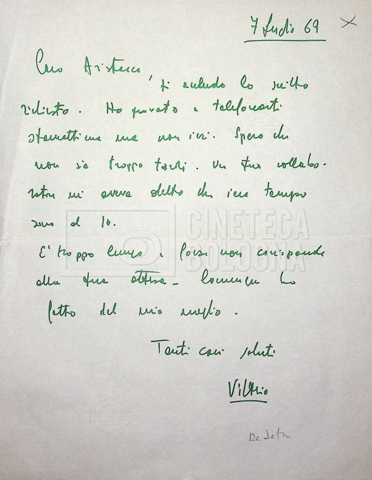 7 Luglio 69
Caro Aristarco,
ti accludo lo scritto
richiesto. Ho provato a telefonarti
stamattina ma non c'eri. Spero che
non sia troppo tardi. Un tuo collabo-
ratore mi aveva detto che c'era tempo
sino al 10.
E' troppo lungo e forse non corrisponde
alla tua attesa - Comunque ho
fatto del mio meglio.
Tanti cari saluti
Vittorio
De Seta
CINETECA
BOLOGNA